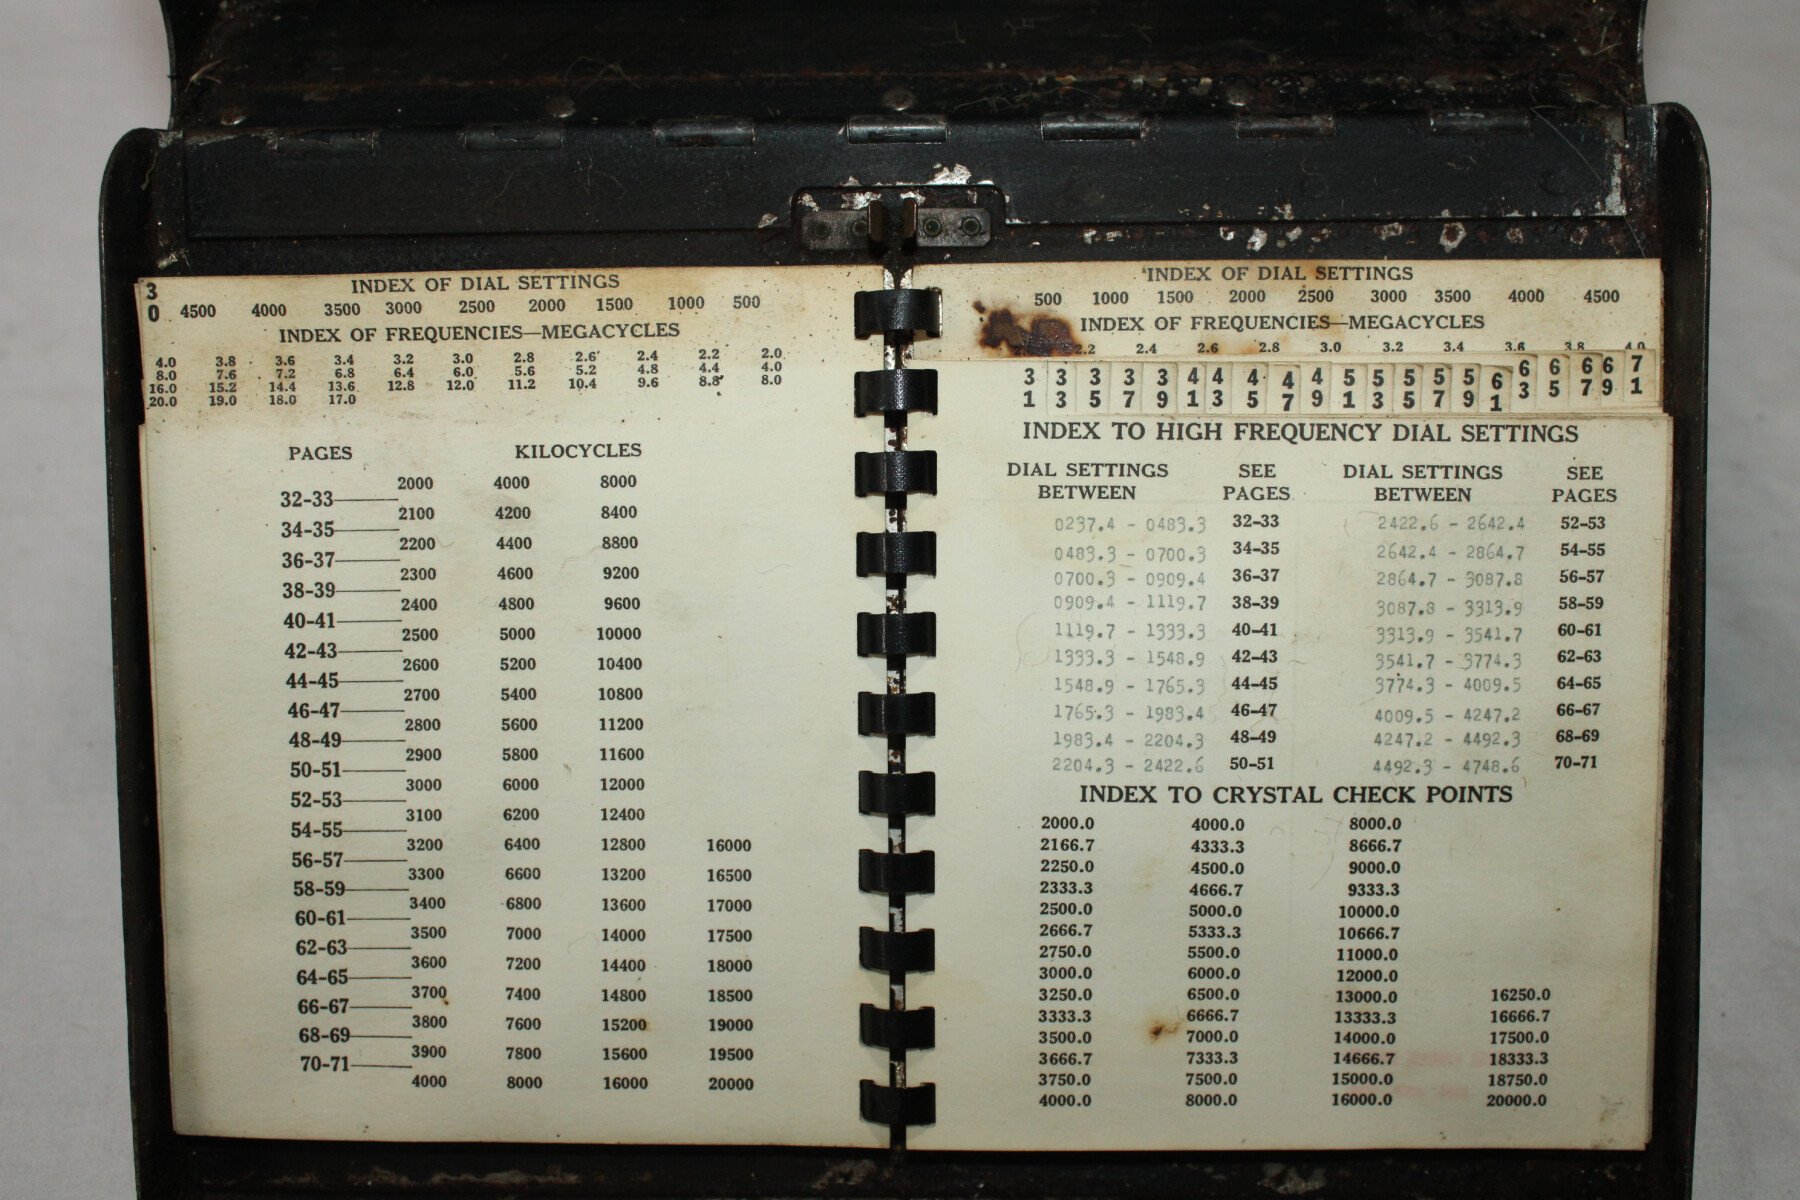 3
0
INDEX OF DIAL SETTINGS
4500 4000 3500 3000 2500 2000 1500 1000 500
INDEX OF FREQUENCIES—MEGACYCLES
4.0 3.8 3.6 3.4 3.2 3.0 2.8 2.6 2.4 2.2 2.0
8.0 7.6 7.2 6.8 6.4 6.0 5.6 5.2 4.8 4.4 4.0
16.0 15.2 14.4 13.6 12.8 12.0 11.2 10.4 9.6 8.8 8.0
20.0 19.0 18.0 17.0
PAGES KILOCYCLES
2000 4000 8000
32-33
2100 4200 8400
34-35
2200 4400 8800
36-37
2300 4600 9200
38-39
2400 4800 9600
40-41
2500 5000 10000
42-43
2600 5200 10400
44-45
2700 5400 10800
46-47
2800 5600 11200
48-49
2900 5800 11600
50-51
3000 6000 12000
52-53
3100 6200 12400
54-55
3200 6400 12800 16000
56-57
3300 6600 13200 16500
58-59
3400 6800 13600 17000
60-61
3500 7000 14000 17500
62-63
3600 7200 14400 18000
64-65
3700 7400 14800 18500
66-67
3800 7600 15200 19000
68-69
3900 7800 15600 19500
70-71
4000 8000 16000 20000
INDEX OF DIAL SETTINGS
500 1000 1500 2000 2500 3000 3500 4000 4500
INDEX OF FREQUENCIES—MEGACYCLES
2.2 2.4 2.6 2.8 3.0 3.2 3.4 3.6 3.8 4.0
31 33 35 37 39 41 43 45 47 49 51 53 55 57 59 61 63 65 67 69 71
INDEX TO HIGH FREQUENCY DIAL SETTINGS
DIAL SETTINGS SEE DIAL SETTINGS SEE
BETWEEN PAGES BETWEEN PAGES
0237.4 - 0483.3 32-33 2422.6 - 2642.4 52-53
0483.3 - 0700.3 34-35 2642.4 - 2864.7 54-55
0700.3 - 0909.4 36-37 2864.7 - 3087.8 56-57
0909.4 - 1119.7 38-39 3087.8 - 3313.9 58-59
1119.7 - 1333.3 40-41 3313.9 - 3541.7 60-61
1333.3 - 1548.9 42-43 3541.7 - 3774.3 62-63
1548.9 - 1765.3 44-45 3774.3 - 4009.5 64-65
1765.3 - 1983.4 46-47 4009.5 - 4247.2 66-67
1983.4 - 2204.3 48-49 4247.2 - 4492.3 68-69
2204.3 - 2422.6 50-51 4492.3 - 4748.6 70-71
INDEX TO CRYSTAL CHECK POINTS
2000.0 4000.0 8000.0
2166.7 4333.3 8666.7
2250.0 4500.0 9000.0
2333.3 4666.7 9333.3
2500.0 5000.0 10000.0
2666.7 5333.3 10666.7
2750.0 5500.0 11000.0
3000.0 6000.0 12000.0
3250.0 6500.0 13000.0 16250.0
3333.3 6666.7 13333.3 16666.7
3500.0 7000.0 14000.0 17500.0
3666.7 7333.3 14666.7 18333.3
3750.0 7500.0 15000.0 18750.0
4000.0 8000.0 16000.0 20000.0